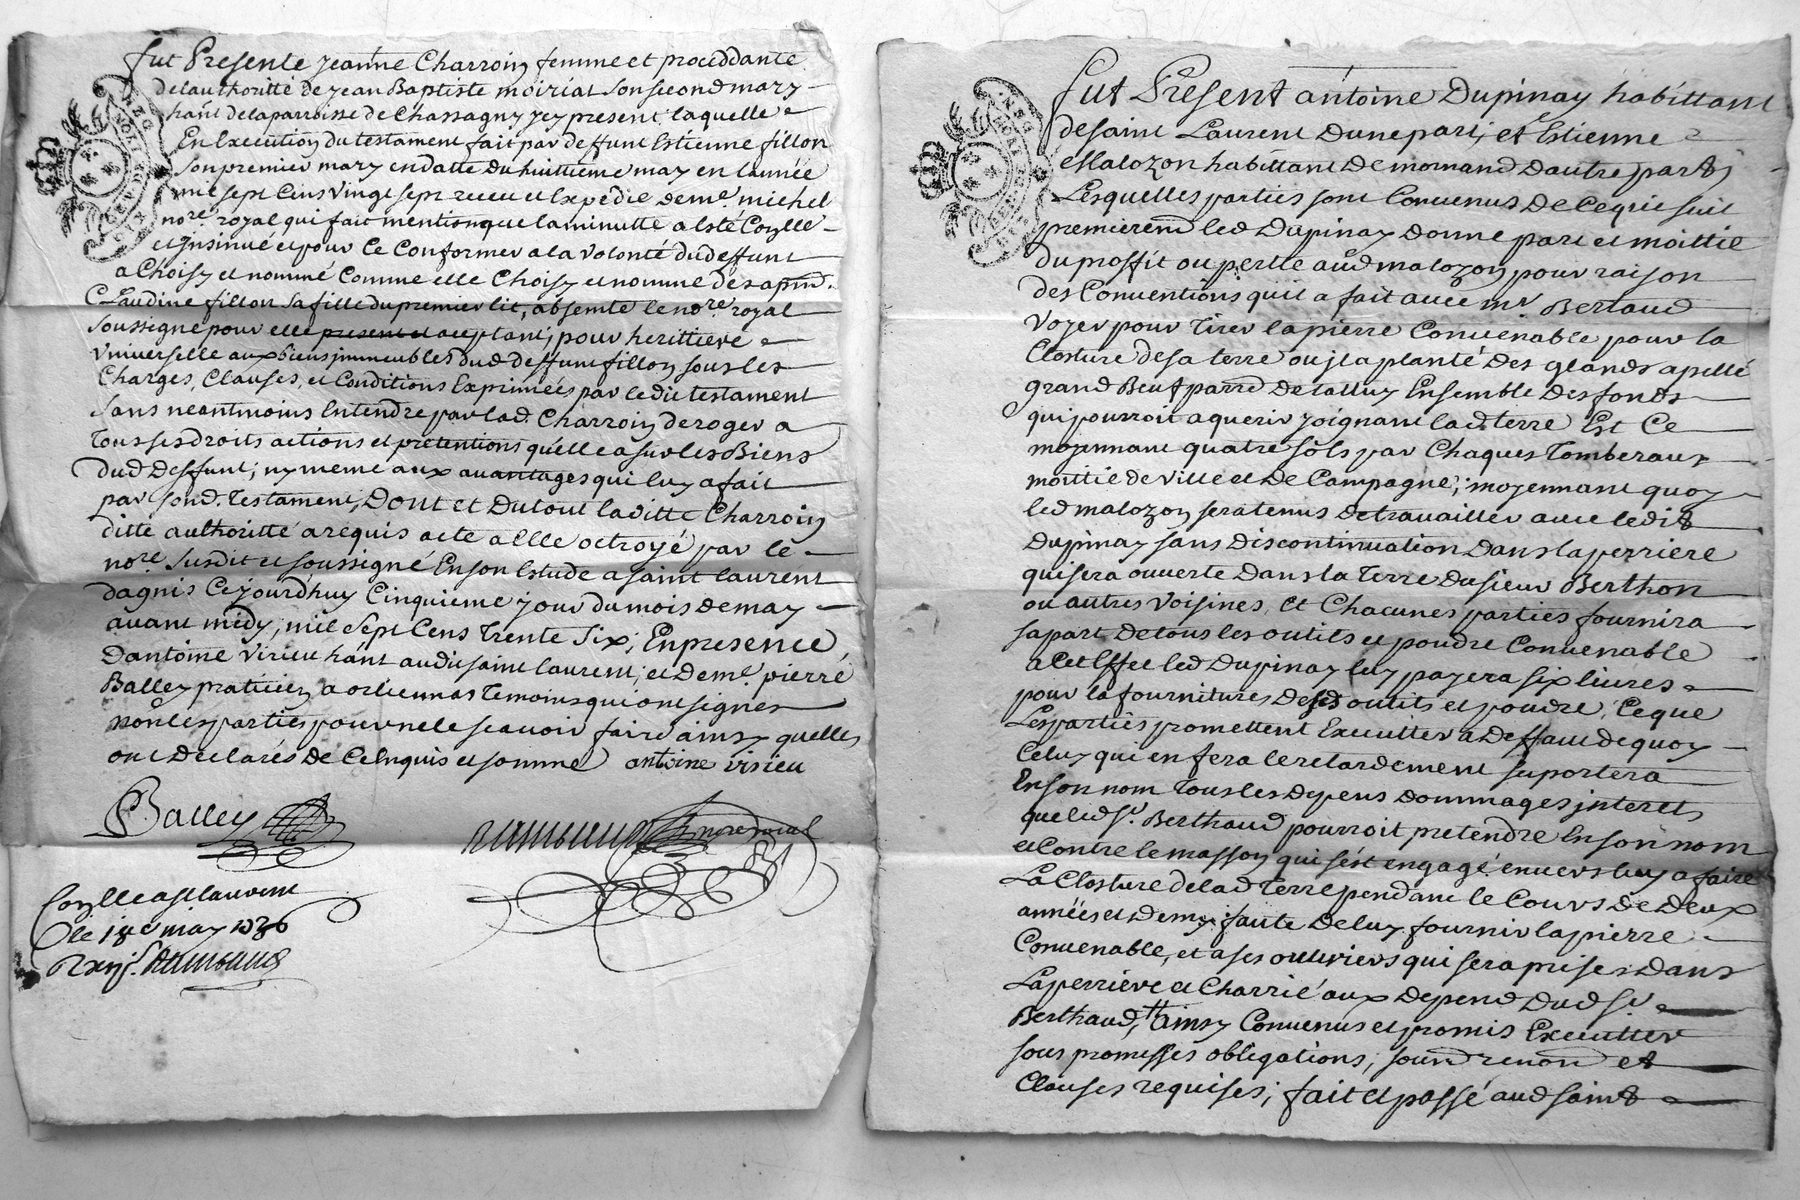 fut Presente jeanne Charroin femme et proceddante
de lauthoritté de jean Baptiste moiriat son second mary
hant de la parroisse de Chassagny icy present, laquelle
En Execution du testament fait par deffunt Estienne fillon
son premier mary en datte du huittieme may en lannée
mil sept cens vingt sept receu et Expedié de me. michel
nore. royal qui fait mention que la minutte a esté Conllé
et jnsinué et pour Ce Conformer a la volonté dud deffunt
a Choisy et nommé Comme elle Choisy et nomme des apnt.
Claudine fillon sa fille du premier lit, absente le nore. royal
soussigné pour elle present et aceptant, pour herittiere
Vniverselle aux biens jmmeubles dud deffunt fillon sous les
Charges, Clauses, et Conditions Exprimées par le dit testament
sans neantmoins Entendre par lad. Charroin deroger a
tous ses droits actions et pretentions quelle a sur les Biens
dud deffunt, ny meme aux avantages qui luy a fait
par sond. testament, Dont et Du tout la ditte Charroin
ditte authoritté a requis acte a Elle octroyé par le
nore. susdit et soussigné En son Estude a saint laurent
dagnis Ce jourdhuy Cinquieme jour du mois de may
auant midy, mil sept Cens trente six, En presence
Dantoine Virieu hant audit saint laurent, et de me. pierre
Balley praticien a orliennas temoins qui ont signés
non les parties pour ne le scauoir faire ainsy quelles
ont declarés de Ce Enquis et sommé antoine irsieu
Balley
nore royal
Conllé a st laurent
le may 1736
fut Present antoine Dupinay habittant
de saint Laurent Dune part, et Estienne
Malozon habittant De mornand Dautre part
Lesquelles parties sont Conuenus De Ce qui suit
premierem led Dupinay Donne part et moittié
du proffit ou perte aud malozon pour raison
des Conuentions quil a fait auec mr. Bertaud
Voyer pour tirer la pierre Conuenable pour la
Closture de sa terre ou jl a planté Des glands apellé
grand Beuf parre De talluy Ensemble Des fonds
qui pourroit aquerir joignant lad terre Est Ce
moyennant quatre sols par Chaques tomberaux
moittié de ville et De Campagne, moyennant quoy
led malozon sera tenus de trauailler auec ledit
dupinay sans discontinuation Dans la perriere
qui sera ouuerte Dans la terre du sieur Berthon
ou autres voisines, Et Chacunes parties fournira
sa part De tous les outils et poudre Conuenable
a Cet Effet led Dupinay luy payera six liures
pour la fournitures Desd outils et poudre, Ce que
Les parties promettent Executter a Deffaut de quoy
Celuy qui en fera le retardement suportera
En son nom tous les depens Dommages jnterets
que led sr. Berthaud pourroit pretendre En son nom
et Contre le masson qui sest engagé enuers luy a faire
La Closture de lad terre pendant le Cours de Deux
années et Demy faute De luy fournir la pierre
Conuenable, et a ses ouuriers qui sera prises Dans
La perriere et Charrié aux Depend Dud sr
Berthaud, ainsy Conuenus et promis Executter
sous promesses obligations, et
Clauses requises, fait et passé aud saint